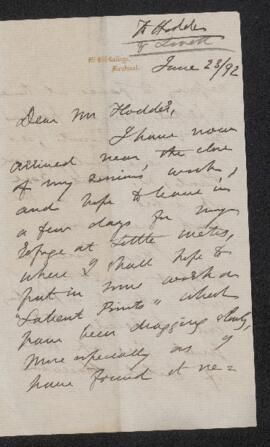 To Hodder
& Smith
McGill College,
Montreal.
June 28/92
Dear Mr Hodder,
I have now
arrived near the close
of my sessions' work,
and hope to leave in
a few days for my
Cottage at Little Metis,
where I shall hope to
put in some work on
"Salient Points" which
have been dragging slowly,
more especially as I
have found it ne=